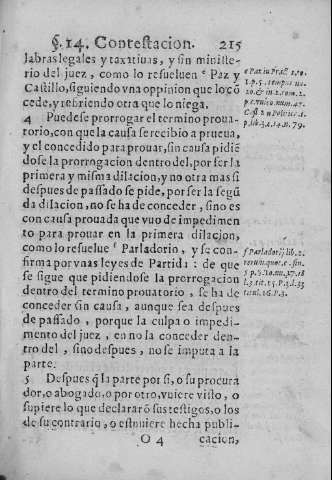 §. 14. Contestacion. 215
labras legales y taxatiuas, y sin ministe-
rio del juez, como lo resueluen e Paz y
Castillo, siguiendo vna oppinion que lo cõ
cede, y refiriendo otra que lo niega.
4 Puedese prorrogar el termino prouа-
torio, con que la causa se recibio a prueua,
y el concedido para prouar, sin causa pidiẽ
dose la prorrogacion dentro del, por ser la
primera y misma dilacion, y no otra mas si
despues de passado se pide, por ser la segũ
da dilacion, no se ha de conceder, sino es
con causa prouada que vuo de impedimen
to para prouar en la primera dilacion,
como lo resuelue f Parladorio, y se con-
firma por vnas leyes de Partida: de que
se sigue que pidiendose la prorregacion
dentro del termino prouatorio, se ha de
conceder sin causa, aunque sea despues
de passado, porque la culpa o impedi-
mento del juez, en no la conceder den-
tro del, sino despues, no se imputa a la
parte.
5 Despues q̃ la parte por si, o su procura
dor, o abogado, o por otro, vuiere visto, o
supiere lo que declararõ sus testigos, o los
de su contrario, o estuuiere hecha publi-
O 4 cacion,
e Paz in Prac. 1. to.
1. p. 5. tempus nu.
20. & in 2. tom. 2.
p. c. vnico num. 47.
f Parlador. lib. 2.
rerum quot. c. fin.